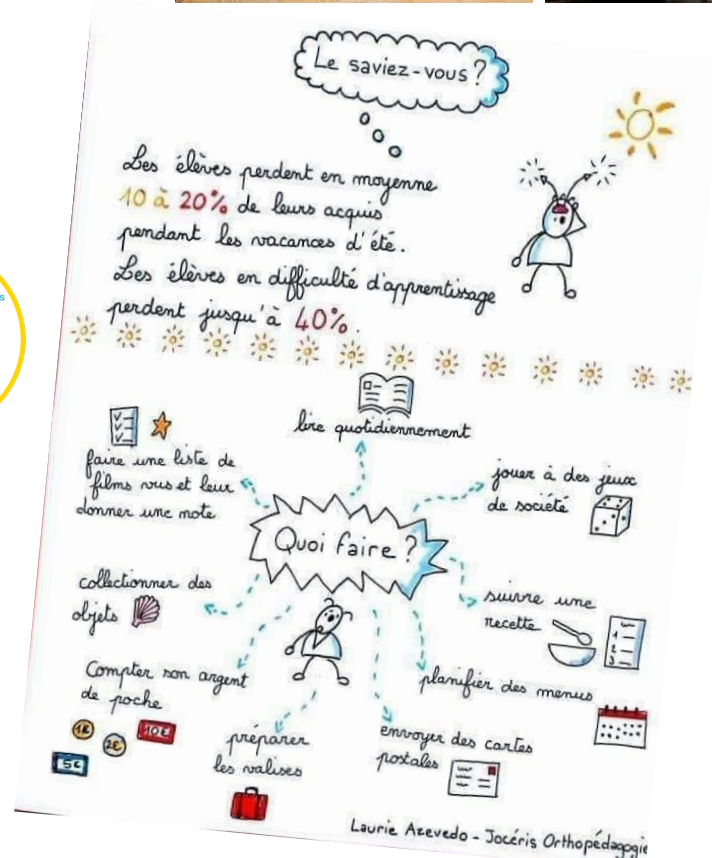 Le saviez-vous ?
Les élèves perdent en moyenne
10 à 20% de leurs acquis
pendant les vacances d'été.
Les élèves en difficulté d'apprentissage
perdent jusqu'à 40%.
lire quotidiennement
faire une liste de
films vus et leur
donner une note
jouer à des jeux
de société
Quoi faire ?
collectionner des
objets
suivre une
recette
1
2
3
Compter son argent
de poche
planifier des menus
1€
2€
10€
5€
préparer
les valises
envoyer des cartes
postales
Laurie Azevedo - Jocéris Orthopédagogie